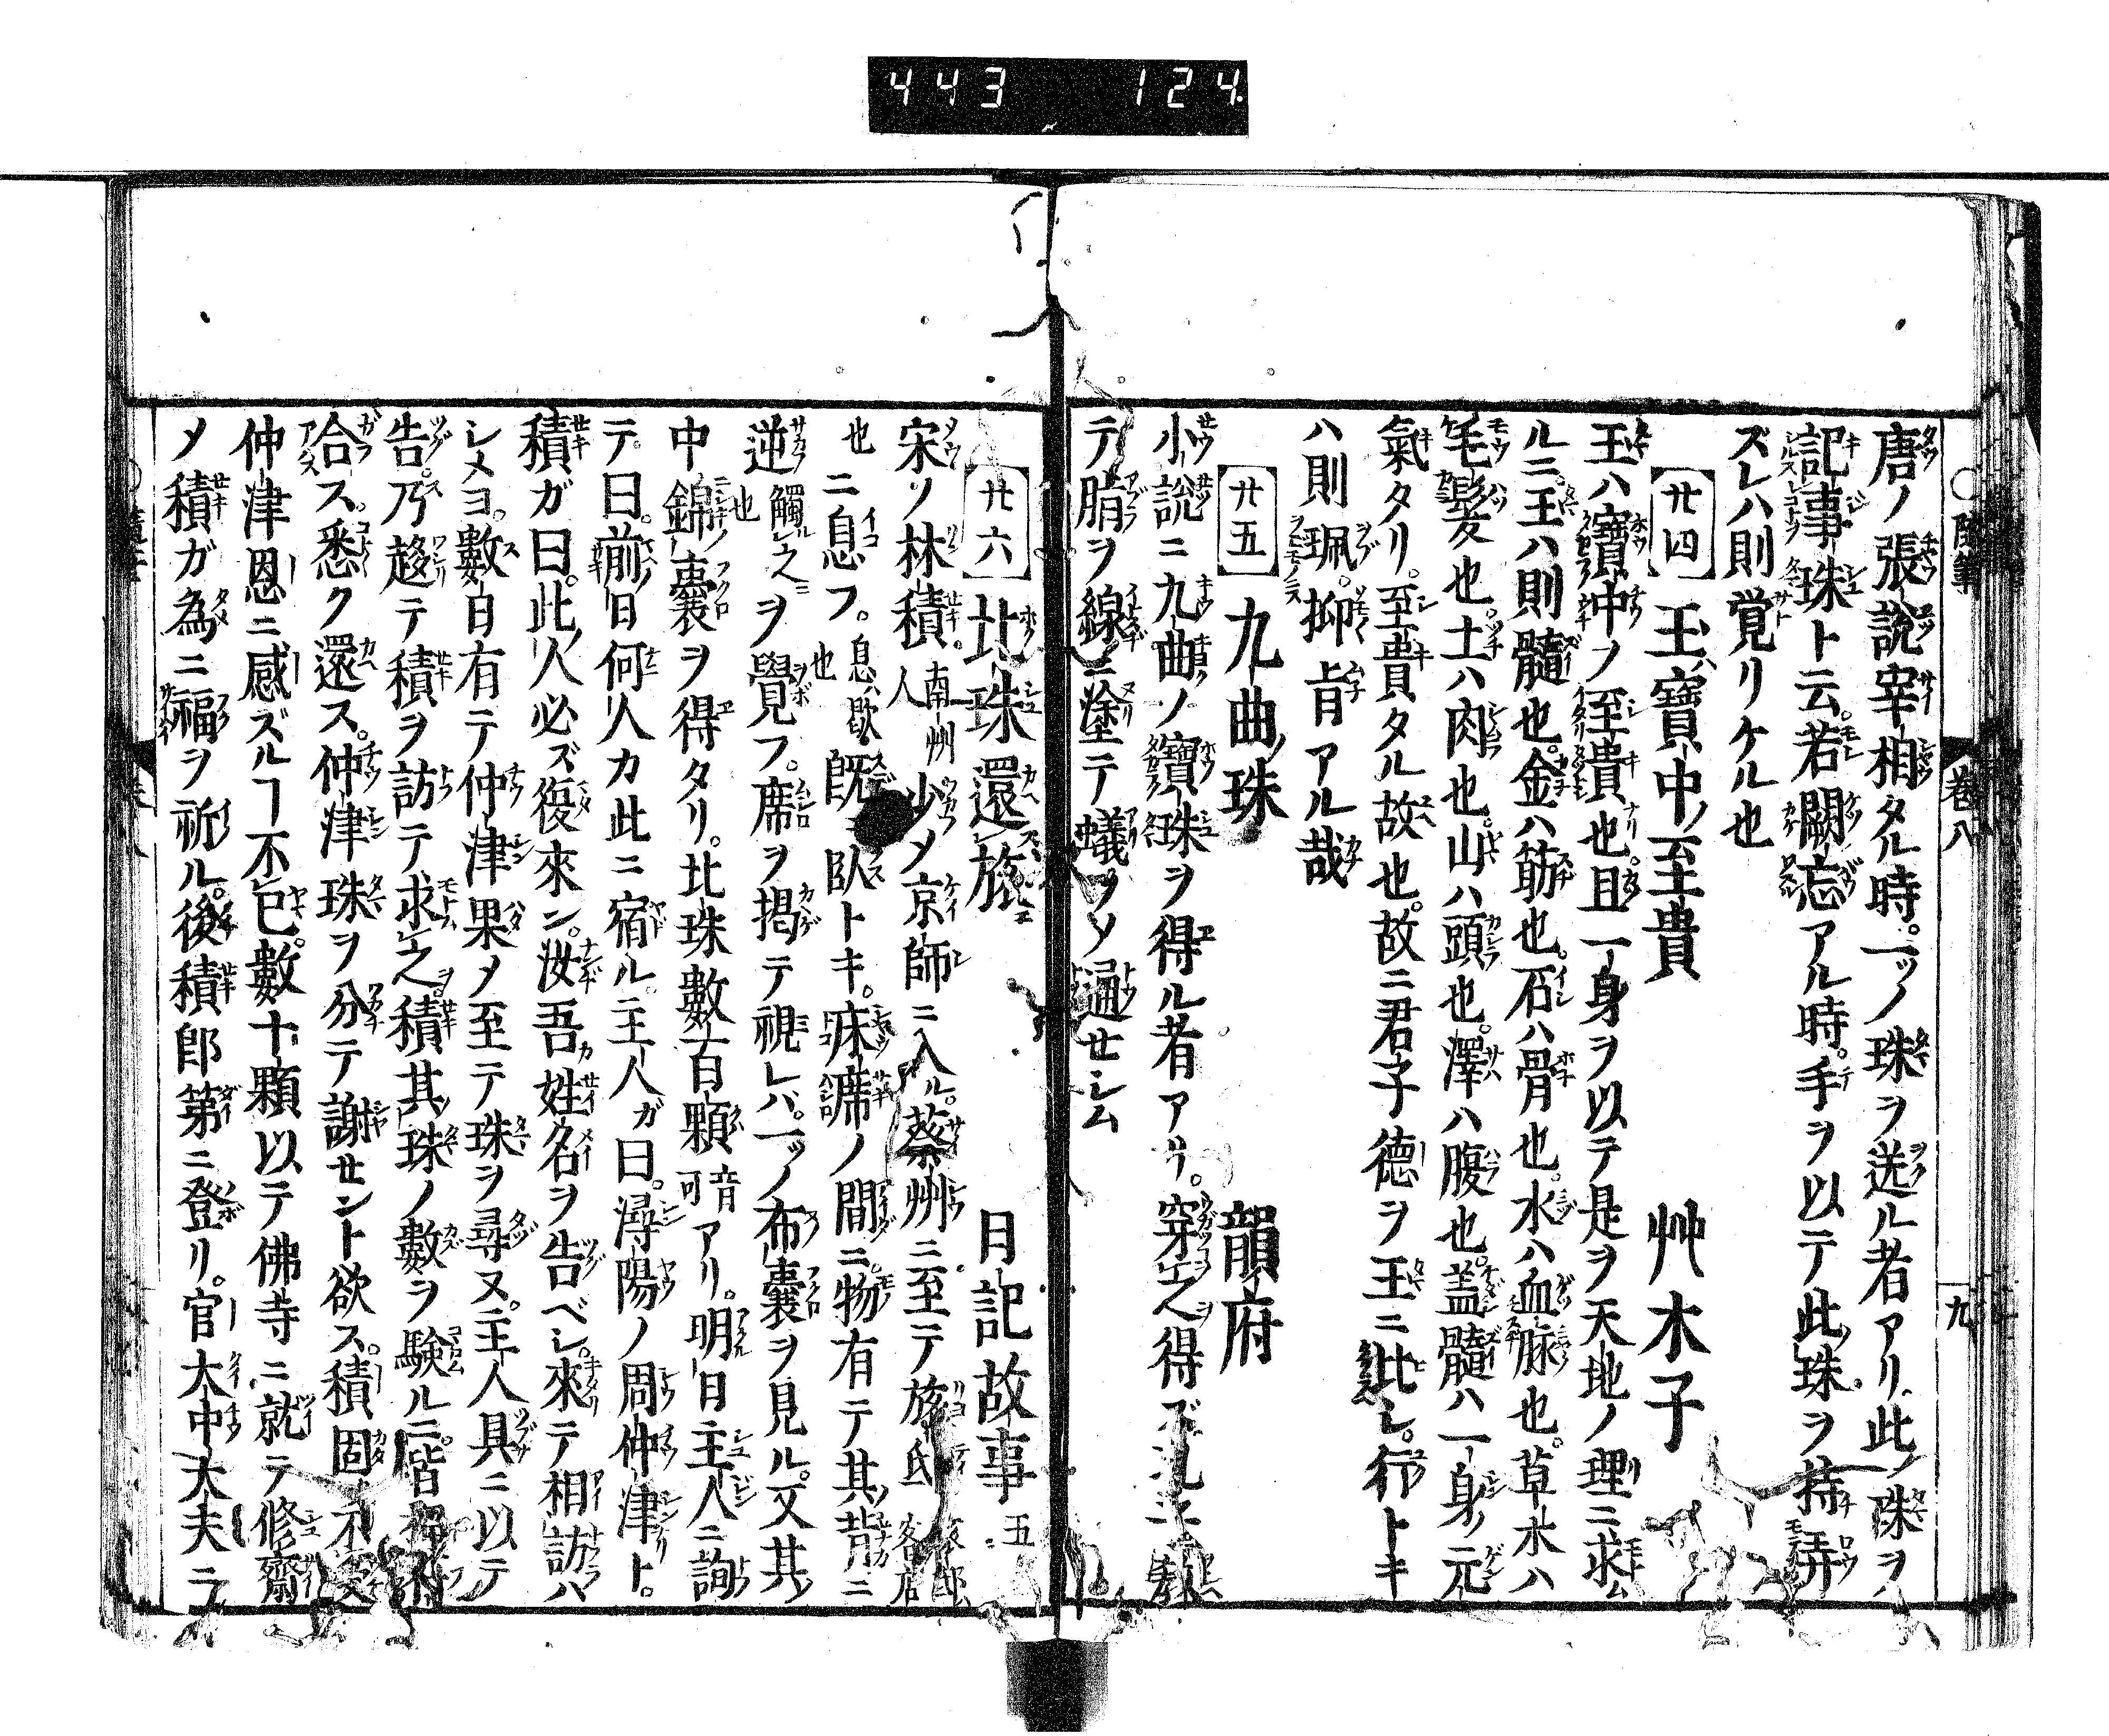 443 124.
巻八
九
唐ノ張説宰相タル時。一ツノ珠ヲ送ル者アリ。此ノ珠ヲハ
記事珠ト云。若闕忘アル時。手ヲ以テ此ノ珠ヲ持弄
ズレハ則覚リケル也
廿四 玉ハ寶中ノ至貴 艸木子
玉ハ寶中ノ至貴也。且一身ヲ以テ是ヲ天地ノ理ニ求ム
ルニ。玉ハ則髓也。金ハ筋也。石ハ骨也。水ハ血脉也。草木ハ
毛髪也。土ハ肉也。山ハ頭也。澤ハ腹也。盖髓ハ一身ノ元
氣タリ。至貴タル故也。故ニ君子徳ヲ玉ニ比シ。行トキ
ハ則珮。抑旨アル哉
廿五 九曲ノ珠 韻府
小説ニ九曲ノ寶珠ヲ得ル者アリ。穿之得ズ孔
テ脂ヲ線ニ塗テ蟻ヲソ通セシム
廿六 北珠還旅 日記故事 五
宋ノ林積 南州人 少メ京師ニ入ル。蔡州ニ至テ旅氏 客店
也 ニ息フ。息歇也 既ニ臥トキ。床席ノ間ニ物有テ其ノ背ニ
逆 觸之也 ヲ覺見フ。席ヲ掲テ視レハ。一ツノ布囊ヲ見ル。又其ノ
中錦ノ囊ヲ得タリ。北珠數百顆 音可 アリ。明日主人ニ詢
テ。曰。前日何人カ此ニ宿ル。主人ガ曰。潯陽ノ周仲津ト。
積ガ曰。此ノ人必ズ復來ン。汝吾姓名ヲ告ベシ。來テ相訪ハ
シメヨ。數日有テ仲津果メ至テ珠ヲ尋ヌ。主人具ニ以テ
告。乃趍テ積ヲ訪テ求之。積其ノ珠ノ數ヲ驗ルニ。皆
合ス。悉ク還ス。仲津珠ヲ分テ謝セント欲ス。積固不受
仲津恩ニ感ズルヿ不已。數十顆以テ佛寺ニ就テ修齋
メ積ガ為ニ福ヲ祈ル。後積郎第ニ登リ。官大中大夫ニ